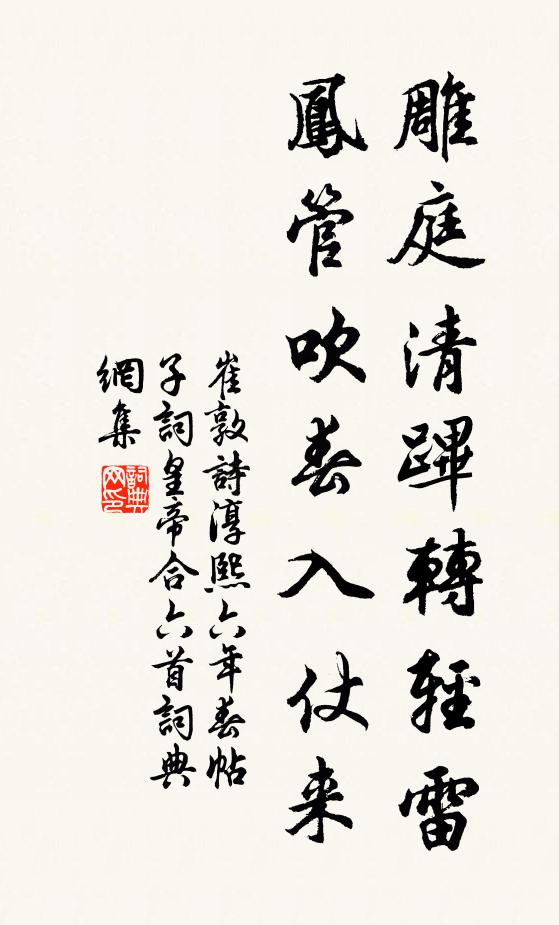 雕庭清蹕轉輕雷
鳳管吹春入仗来
崔敦詩淳熙六年春帖
子詞皇帝合六首詞典
網集
詞典網印